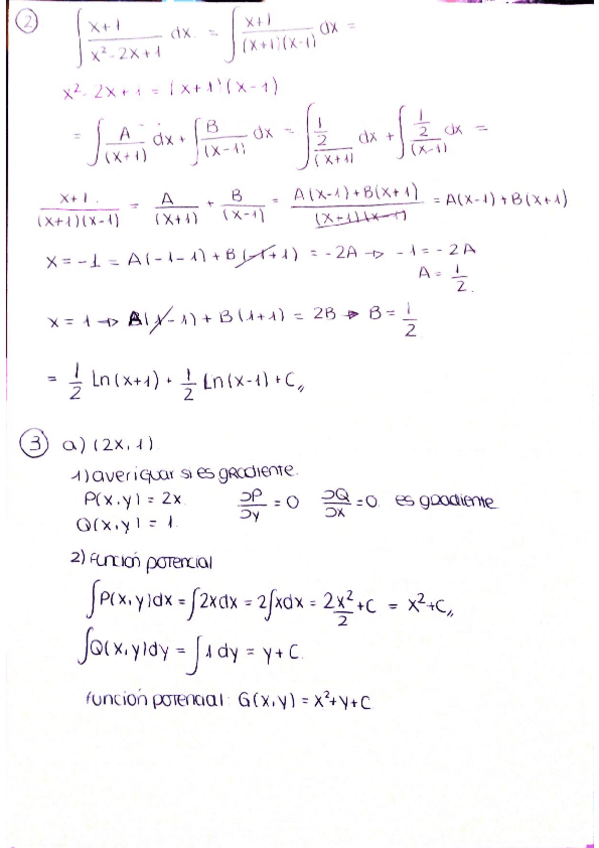 ② ∫ (x+1)/(x²-2x+1) dx = ∫ (x+1)/((x+1)(x-1)) dx =
x²-2x+1 = (x+1)(x-1)
= ∫ A/(x+1) dx + ∫ B/(x-1) dx = ∫ (1/2)/(x+1) dx + ∫ (1/2)/(x-1) dx =
(x+1)/((x+1)(x-1)) = A/(x+1) + B/(x-1) = (A(x-1)+B(x+1))/((x+1)(x-1)) = A(x-1)+B(x+1)
x=-1 = A(-1-1)+B(-1+1) = -2A → -1=-2A
A=1/2.
x=1 → A(1-1)+B(1+1) = 2B → B=1/2
= 1/2 Ln(x+1) + 1/2 Ln(x-1)+C,,
③ a) (2x, 1)
1) averiguar si es gradiente.
P(x,y)=2x ∂P/∂y=0 ∂Q/∂x=0 es gradiente
Q(x,y)=1.
2) función potencial
∫P(x,y)dx = ∫2xdx = 2∫xdx = 2x²/2+C = x²+C,,
∫Q(x,y)dy = ∫1dy = y+C.
función potencial: G(x,y)=x²+y+C